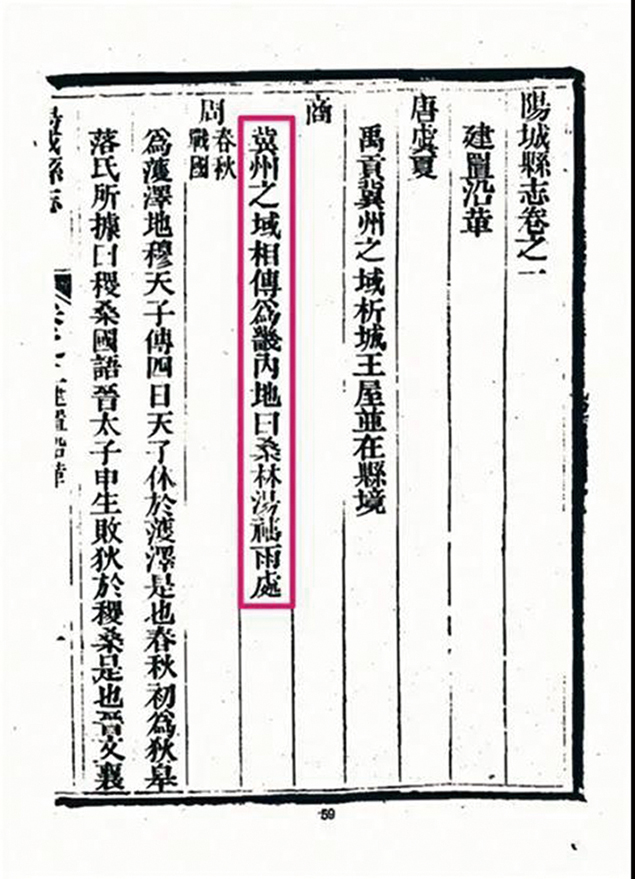 陽城縣志卷之一
建置沿革
唐虞夏
禹貢冀州之域析城王屋並在縣境
商
冀州之域相傳爲畿內地曰桑林湯禱雨處
周
春秋
戰國
爲濩澤地穆天子傳四日天子休於濩澤是也春秋初爲狄皋
落氏所據曰稷桑國語晉太子申生敗狄於稷桑是也晉文襄
59